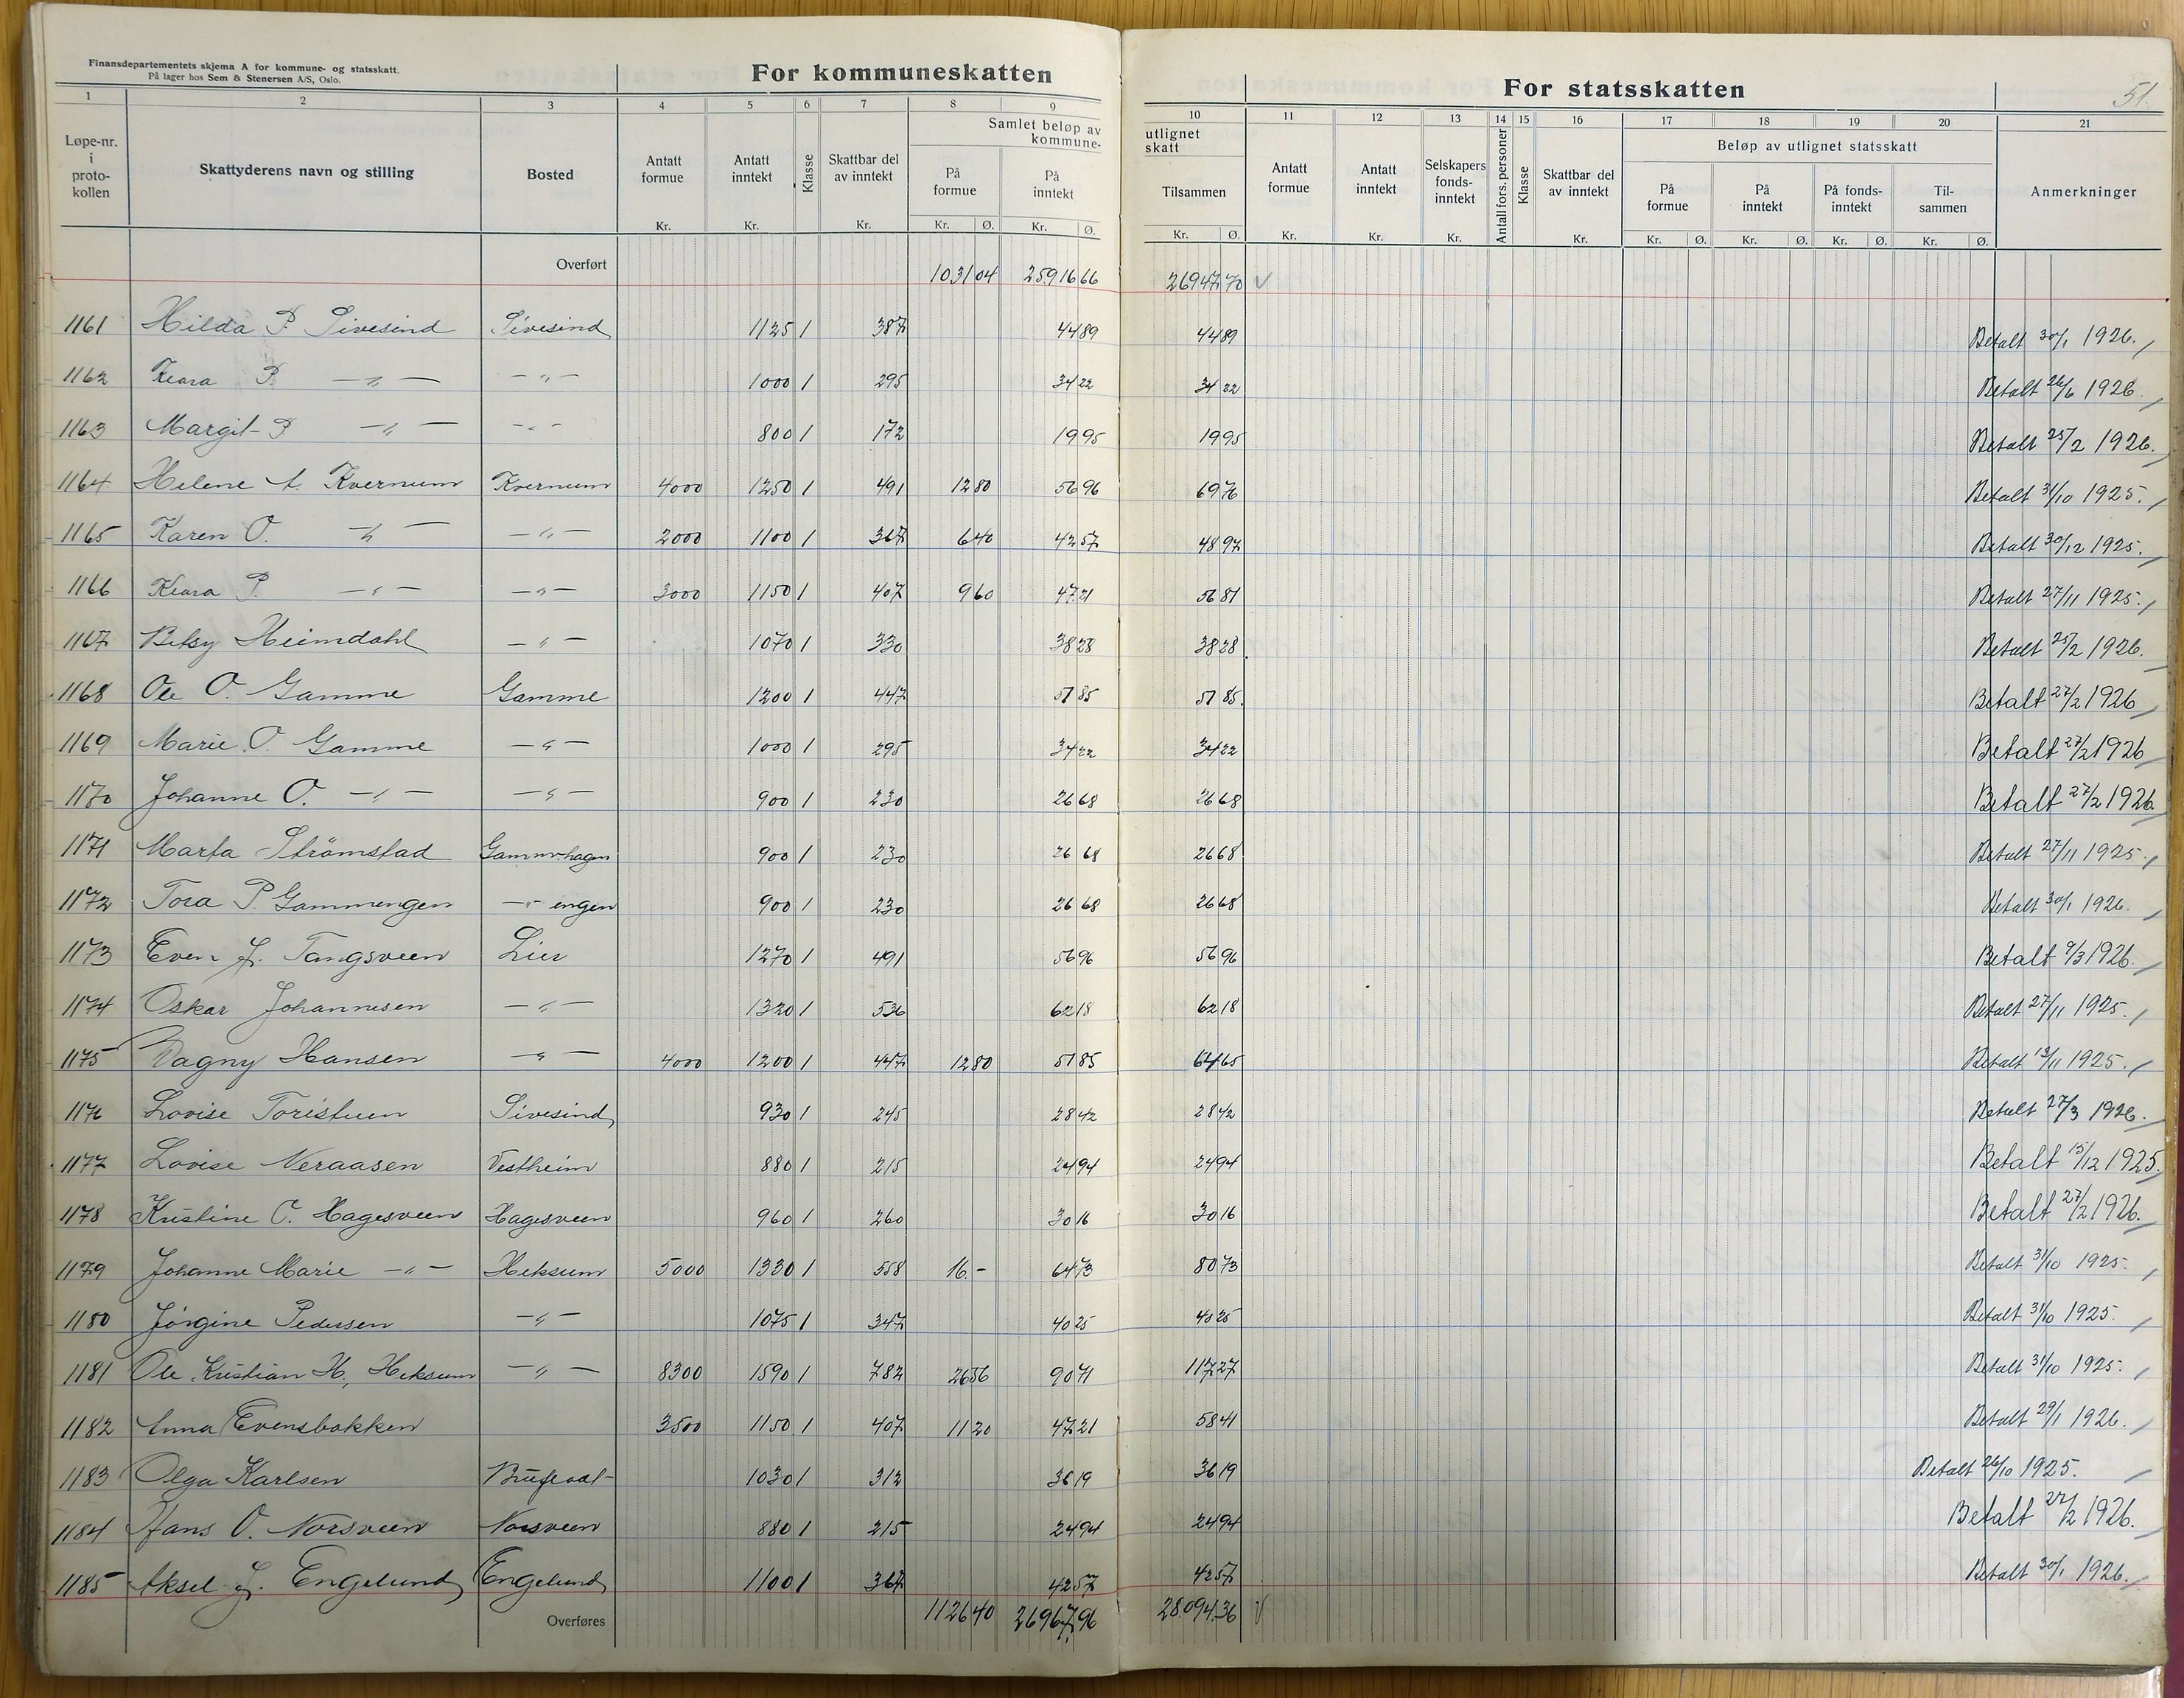 Finansdepartementets skjema A for kommune- og statsskatt.
På lager hos Sem & Stenersen A/S, Oslo.
For kommuneskatten
For statsskatten
51.
1 2 3 4 5 6 7 8 9 10 11 12 13 14 15 16 17 18 19 20 21
Løpe-nr. i proto-kollen Skattyderens navn og stilling Bosted Antatt formue Kr. Antatt inntekt Kr. Klasse Skattbar del av inntekt Kr. Samlet beløp av kommune- På formue Kr. Ø. På inntekt Kr. Ø. utlignet skatt Tilsammen Kr. Ø. Antatt formue Kr. Antatt inntekt Kr. Selskapers fonds-inntekt Kr. Antall fors. personer Klasse Skattbar del av inntekt Kr. Beløp av utlignet statsskatt På formue Kr. Ø. På inntekt Kr. Ø. På fonds-inntekt Kr. Ø. Til-sammen Kr. Ø. Anmerkninger
Overført 1031 04 25.916 66 26947 70 √
1161 Hilda P. Sivesind Sivesind 1125 1 387 44 89 44 89 Betalt 30/1 1926.
1162 Klara P. —"— —"— 1000 1 295 34 22 34 22 Betalt 26/6 1926.
1163 Margit P —"— —"— 800 1 172 19 95 19 95 Betalt 25/2 1926.
1164 Helene A. Kvernum Kvernum 4000 1250 1 491 12 80 56 96 69 76 Betalt 31/10 1925.
1165 Karen O. —"— —"— 2000 1100 1 367 6 40 42 57 48 97 Betalt 30/12 1925.
1166 Klara P. —"— —"— 3000 1150 1 407 9 60 47 21 56 81 Betalt 27/11 1925.
1167 Betsy Heimdahl —"— 1070 1 330 38 28 38 28 Betalt 25/2 1926.
1168 Ole O. Gamme Gamme 1200 1 447 51 85 51 85. Betalt 27/2 1926
1169 Marie O. Gamme —"— 1000 1 295 34 22 34 22 Betalt 27/2 1926
1170 Johanne O. —"— —"— 900 1 230 26 68 26 68 Betalt 27/2 1926
1171 Marta Strömstad Gammehagen 900 1 230 26 68 26 68 Betalt 27/11 1925.
1172 Tora P. Gammengen —"— engen 900 1 230 26 68 26 68 Betalt 30/1 1926.
1173 Even J. Tangsveen Lier 1270 1 491 56 96 56 96 Betalt 9/3 1926.
1174 Oskar Johannesen —"— 1320 1 536 62 18 62 18 Betalt 27/11 1925.
1175 Dagny Hansen —"— 4000 1200 1 447 12 80 51 85 64 65 Betalt 13/11 1925.
1176 Lovise Toristuen Sivesind 930 1 245 28 42 28 42 Betalt 27/3 1926.
1177 Lovise Neraasen Vestheim 880 1 215 24 94 24 94 Betalt 15/12 1925.
1178 Kristine O. Hagesveen Hagesveen 960 1 260 30 16 30 16 Betalt 27/2 1926.
1179 Johanne Marie —"— Heksum 5000 1330 1 558 16.- 64 73 80 73 Betalt 31/10 1925.
1180 Jörgine Pedersen —"— 1075 1 347 40 25 40 25 Betalt 31/10 1925.
1181 Ole Kristian H. Heksum —"— 8300 1590 1 782 26 56 90 71 117 27 Betalt 31/10 1925.
1182 Anna Evensbakken 3500 1150 1 407 11 20 47 21 58 41 Betalt 29/1 1926.
1183 Olga Karlsen 1030 1 312 36 19 36 19 Betalt 26/10 1925.
1184 Hans O. Norsveen Norsveen 880 1 215 24 94 24 94 Betalt 27/2 1926.
1185 Aksel J. Engelund Engelund 1100 1 367 42 57 42 57 Betalt 30/1 1926.
Overføres 1126 40 26967,96 28.094.36 √